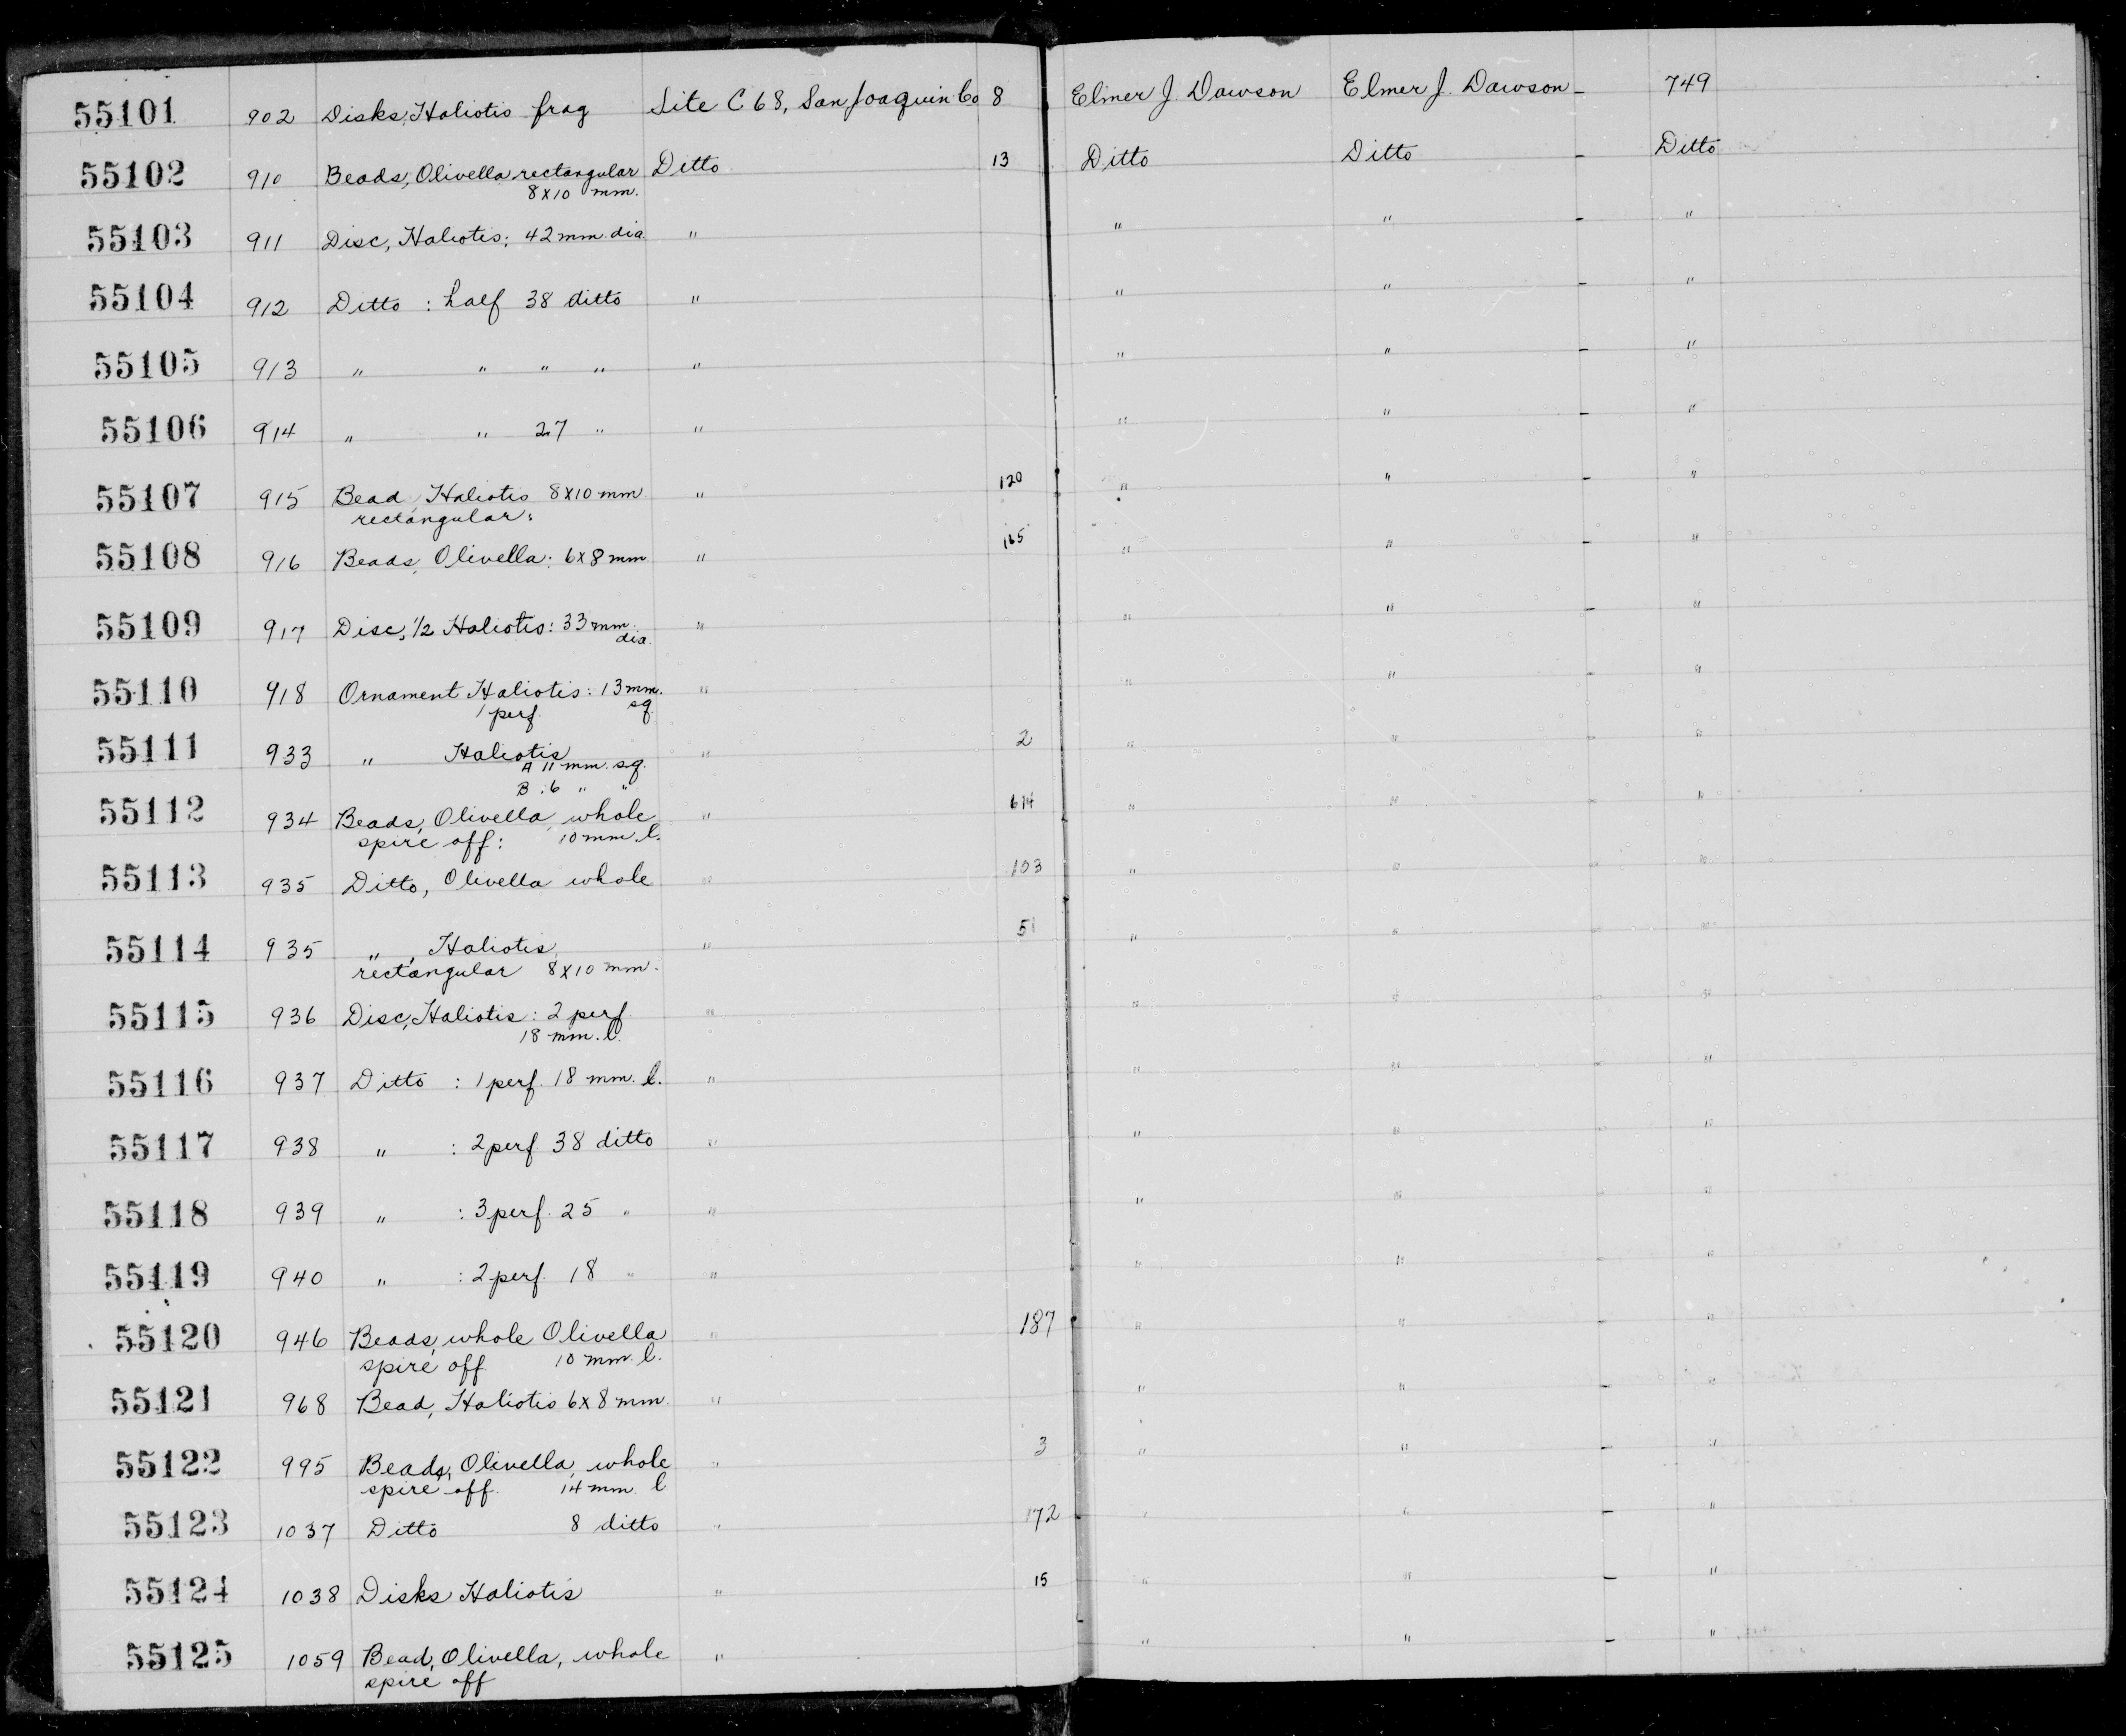 55101 902 Disks, Haliotis frag Site C 68, San Joaquin Co 8 Elmer J. Dawson Elmer J. Dawson - 749
55102 910 Beads, Olivella rectangular Ditto 13 Ditto Ditto - Ditto
8x10 mm.
55103 911 Disc, Haliotis: 42 mm. dia " " " - "
55104 912 Ditto : half 38 ditto " " " - "
55105 913 " " " " " " " - "
55106 914 " " 27 " " " " - "
55107 915 Bead, Haliotis 8x10 mm " 120 " " - "
rectangular:
55108 916 Beads, Olivella: 6x8 mm " 165 " " - "
55109 917 Disc, 1/2 Haliotis: 33 mm. " " " - "
dia.
55110 918 Ornament Haliotis: 13 mm. " " " - "
1 perf. sq.
55111 933 " Haliotis " 2 " " - "
A 11 mm. sq.
B : 6 " "
55112 934 Beads, Olivella, whole " 614 " " - "
spire off: 10 mm. l.
55113 935 Ditto, Olivella whole " 103 " " - "
55114 935 " , Haliotis, " 51 " " - "
rectangular 8x10 mm.
55115 936 Disc, Haliotis: 2 perf " " " - "
18 mm. l.
55116 937 Ditto : 1 perf. 18 mm. l. " " " - "
55117 938 " : 2 perf 38 ditto " " " - "
55118 939 " : 3 perf. 25 " " " " - "
55119 940 " : 2 perf. 18 " " " " - "
55120 946 Beads, whole Olivella " 187 " " - "
spire off 10 mm. l.
55121 968 Bead, Haliotis 6x8 mm " " " - "
55122 995 Beads, Olivella, whole " 3 " " - "
spire off. 14 mm. l
55123 1037 Ditto 8 ditto " 172 " " - "
55124 1038 Disks Haliotis " 15 " " - "
55125 1059 Bead, Olivella, whole " " " - "
spire off